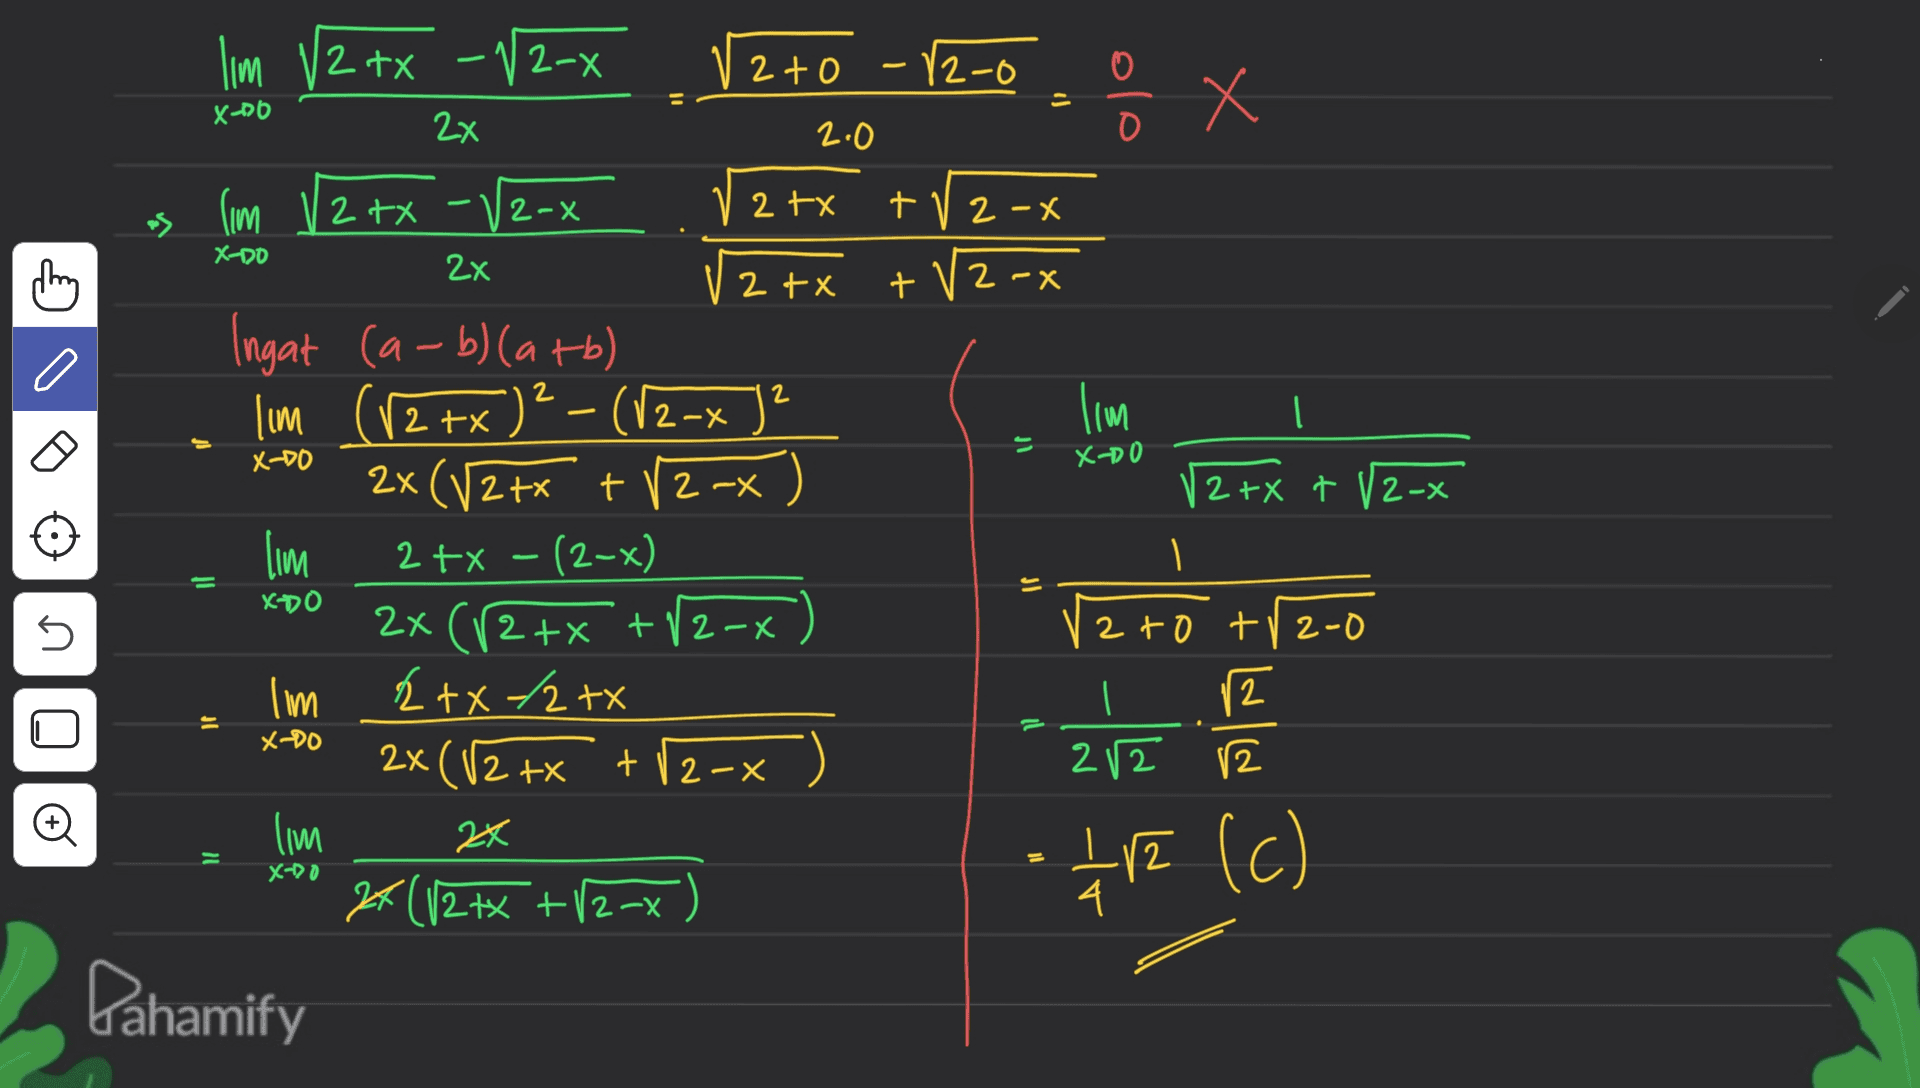 lim x→0 (√2+x - √2-x)/2x = (√2+0 - √2-0)/2.0 = 0/0 X
⇒ lim x→0 (√2+x - √2-x)/2x . (√2+x + √2-x)/(√2+x + √2-x)
Ingat (a-b)(a+b)
= lim x→0 ((√2+x)² - (√2-x)²)/(2x(√2+x + √2-x))
= lim x→0 (2+x - (2-x))/(2x(√2+x + √2-x))
= lim x→0 (2+x-2+x)/(2x(√2+x + √2-x))
= lim x→0 2x/(2x(√2+x + √2-x))
= lim x→0 1/(√2+x + √2-x)
= 1/(√2+0 + √2-0)
= 1/2√2 . √2/√2
= 1/4 √2 (C)
Pahamify